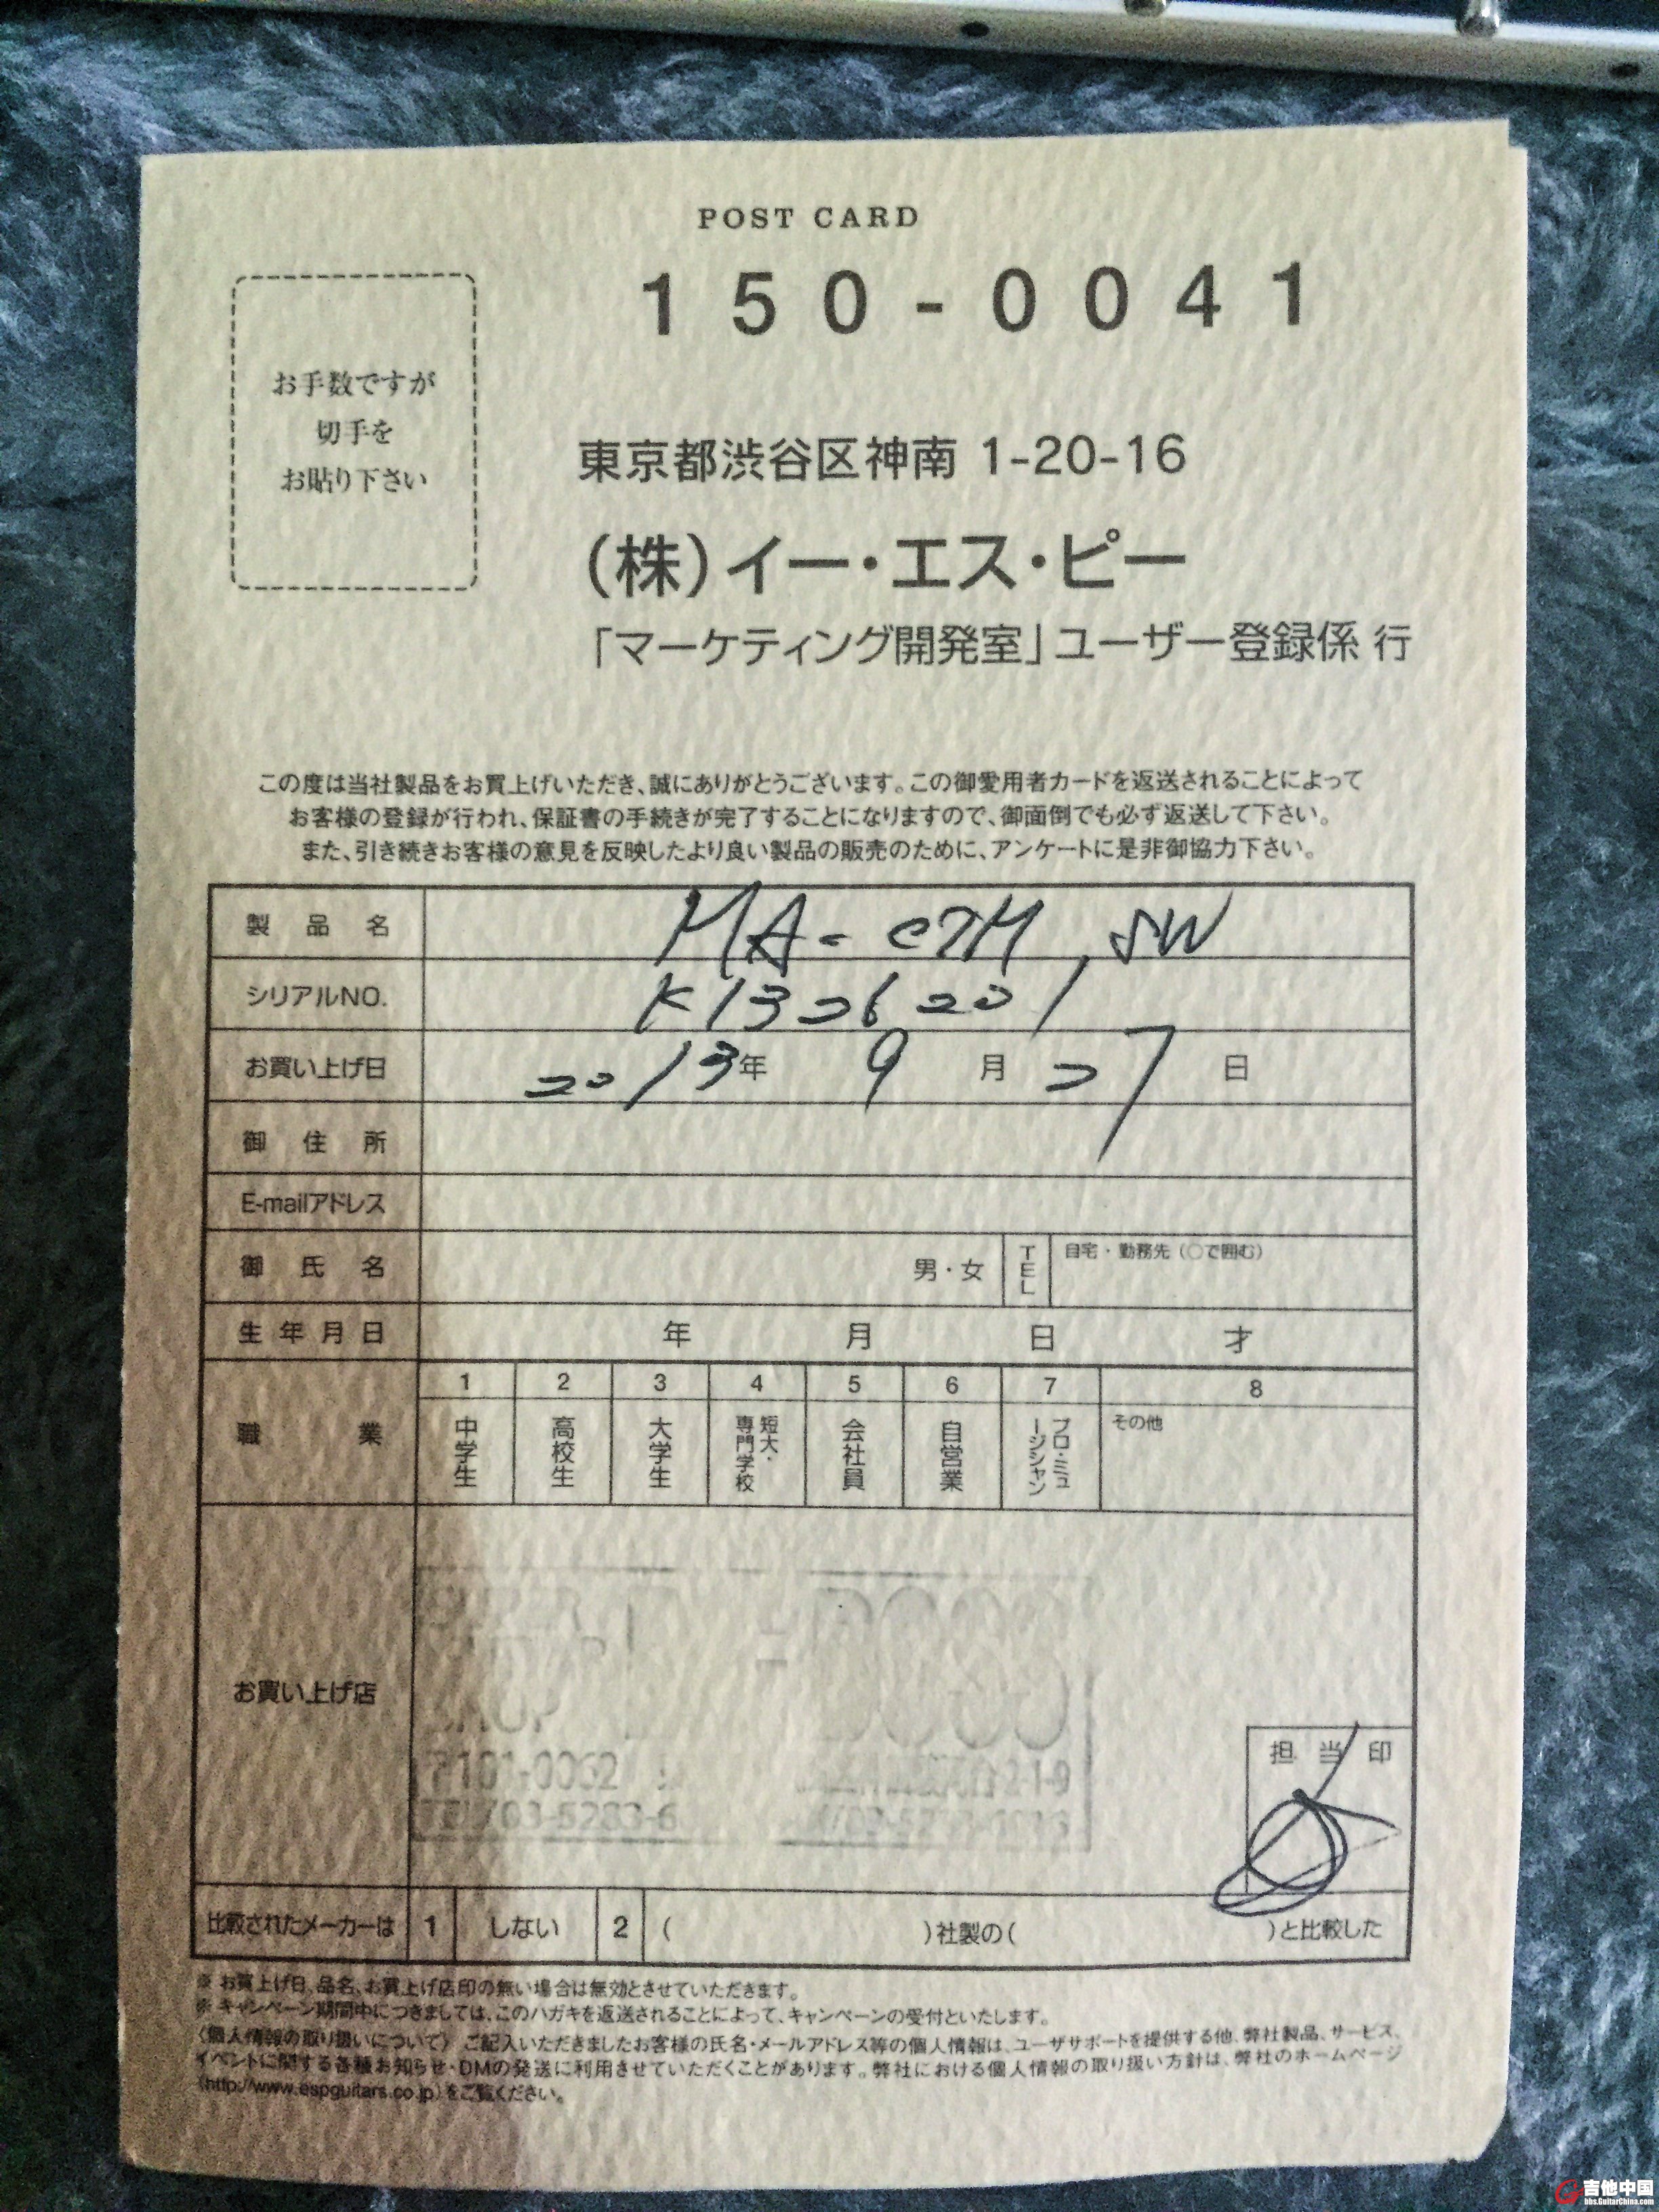 POST CARD
150-0041
お手数ですが
切手を
お貼り下さい
東京都渋谷区神南 1-20-16
(株)イー・エス・ピー
「マーケティング開発室」ユーザー登録係 行
この度は当社製品をお買上げいただき、誠にありがとうございます。この御愛用者カードを返送されることによって
お客様の登録が行われ、保証書の手続きが完了することになりますので、御面倒でも必ず返送して下さい。
また、引き続きお客様の意見を反映したより良い製品の販売のために、アンケートに是非御協力下さい。
製品名 MA- CTM, SW
シリアルNO. K1326201
お買い上げ日 2013年 9月 27日
御住所
E-mailアドレス
御氏名 男・女 TEL 自宅・勤務先(○で囲む)
生年月日 年 月 日 才
職業
1 2 3 4 5 6 7 8
中学生 高校生 大学生 短大・専門学校 会社員 自営業 プロ・ミュージシャン その他
お買い上げ店
〒101-0062
2-1-9
TEL/03-5283-6
担当印
比較されたメーカーは 1 しない 2 ( )社製の( )と比較した
※ お買上げ日、品名、お買上げ店印の無い場合は無効とさせていただきます。
※ キャンペーン期間中につきましては、このハガキを返送されることによって、キャンペーンの受付といたします。
〈個人情報の取り扱いについて〉 ご記入いただきましたお客様の氏名・メールアドレス等の個人情報は、ユーザサポートを提供する他、弊社製品、サービス、
イベントに関する各種お知らせ・DMの発送に利用させていただくことがあります。弊社における個人情報の取り扱い方針は、弊社のホームページ
(http://www.espguitars.co.jp)をご覧ください。
吉他中国
bbs.GuitarChina.com